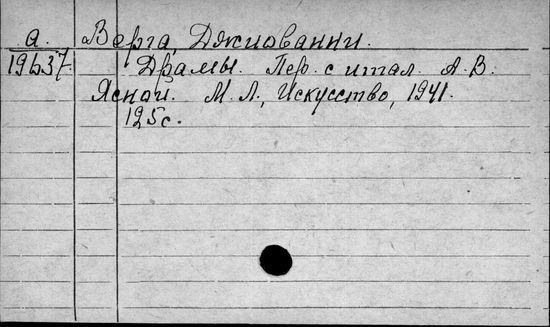 а. Верга, Джиованни.
19637. Драмы. Пер. с итал. А. В.
Ясной. М. Л., Искусство, 1941.
125 с.